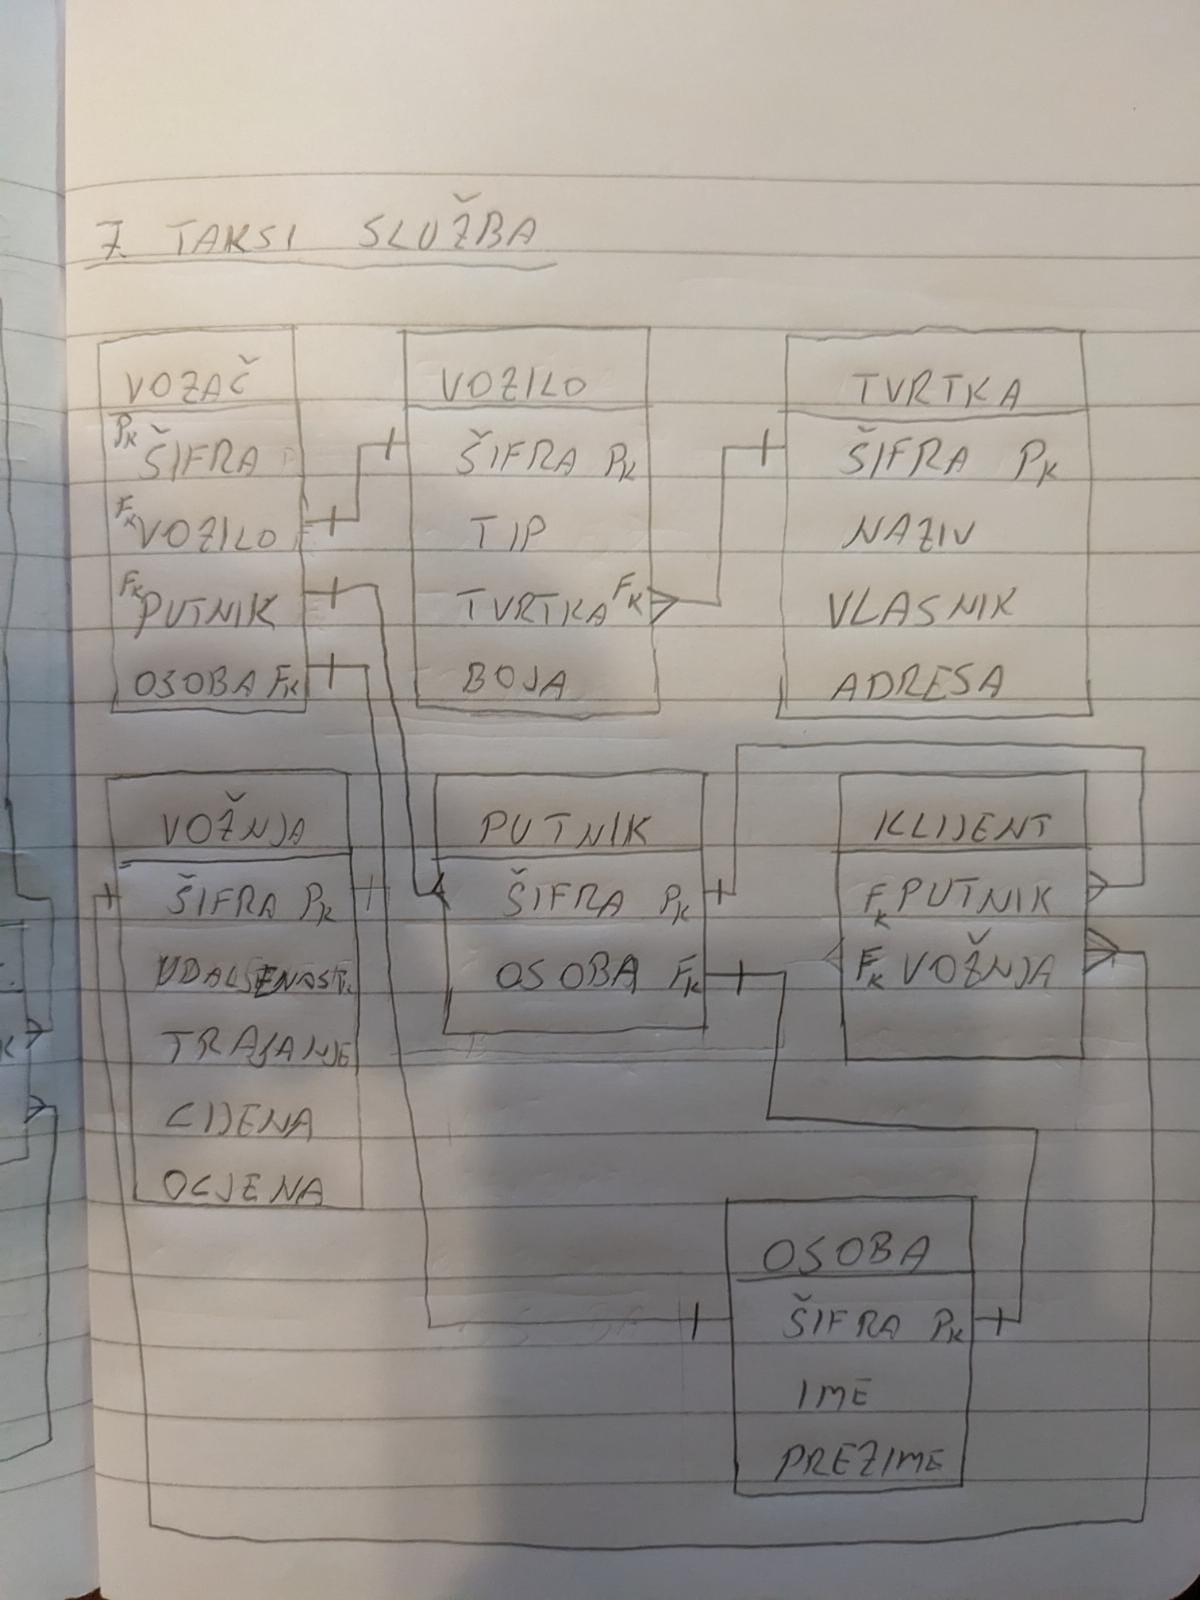 7. TAKSI SLUŽBA
VOZAČ
PK ŠIFRA
FK VOZILO
FK PUTNIK
OSOBA FK
VOZILO
ŠIFRA PK
TIP
TVRTKA FK
BOJA
TVRTKA
ŠIFRA PK
NAZIV
VLASNIK
ADRESA
VOŽNJA
ŠIFRA PK
UDALJENOST
TRAJANJE
CIJENA
OCJENA
PUTNIK
ŠIFRA PK
OSOBA FK
KLIJENT
FK PUTNIK
FK VOŽNJA
OSOBA
ŠIFRA PK
IME
PREZIME